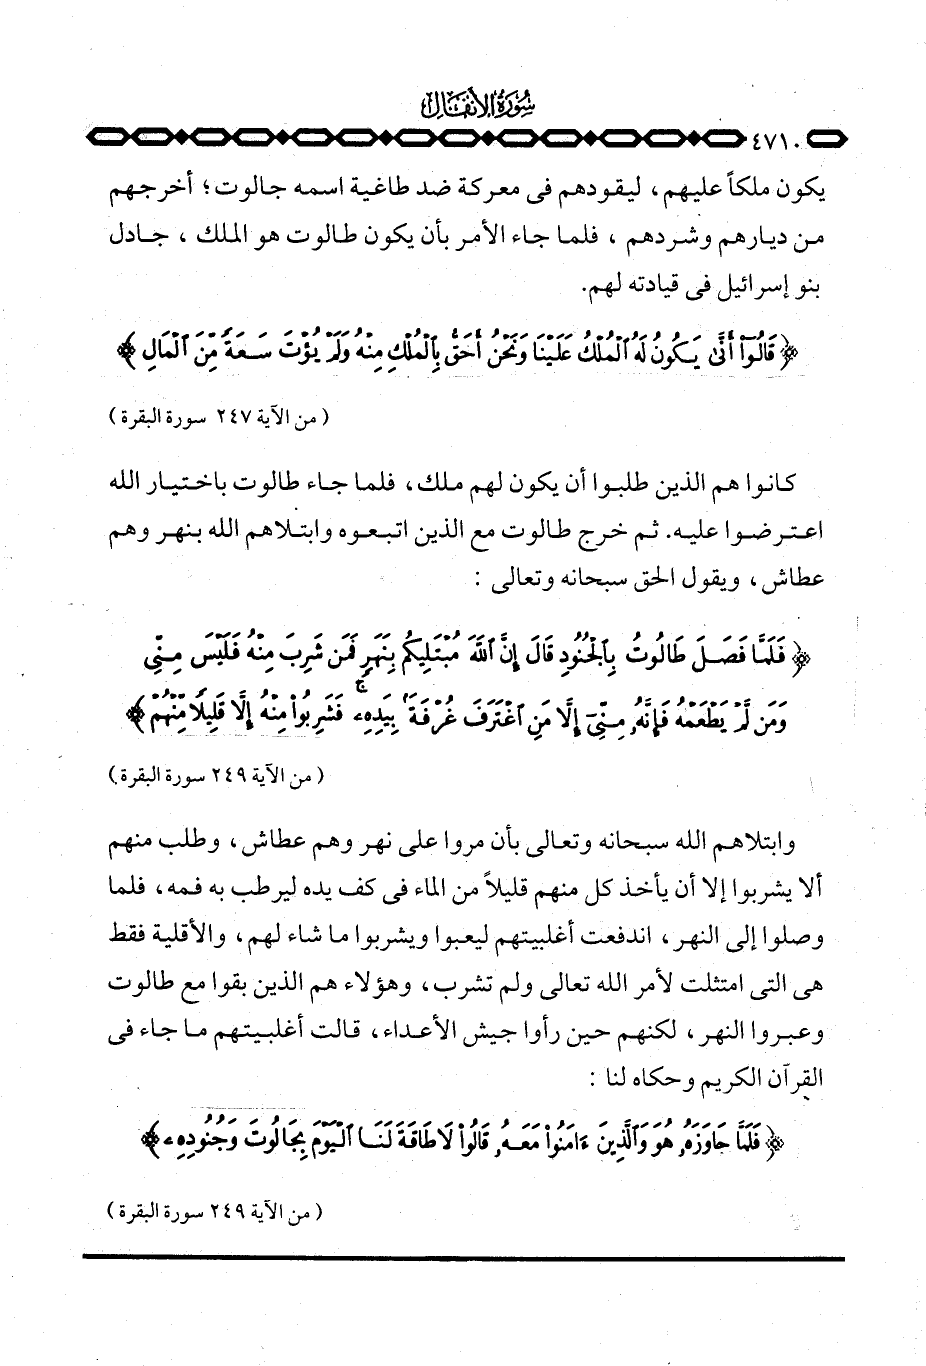 سورة الأنفال
٤٧١٠
يكون ملكاً عليهم ، ليقودهم فى معركة ضد طاغية اسمه جالوت ؛ أخرجهم
من ديارهم وشردهم ، فلما جاء الأمر بأن يكون طالوت هو الملك ، جادل
بنو إسرائيل فى قيادته لهم.
﴿ قَالُوٓا۟ أَنَّىٰ يَكُونُ لَهُ ٱلْمُلْكُ عَلَيْنَا وَنَحْنُ أَحَقُّ بِٱلْمُلْكِ مِنْهُ وَلَمْ يُؤْتَ سَعَةً مِّنَ ٱلْمَالِ ﴾
( من الآية ٢٤٧ سورة البقرة )
كانوا هم الذين طلبوا أن يكون لهم ملك ، فلما جاء طالوت باختيار الله
اعترضوا عليه. ثم خرج طالوت مع الذين اتبعوه وابتلاهم الله بنهر وهم
عطاش ، ويقول الحق سبحانه وتعالى :
﴿ فَلَمَّا فَصَلَ طَالُوتُ بِٱلْجُنُودِ قَالَ إِنَّ ٱللَّهَ مُبْتَلِيكُم بِنَهَرٍ فَمَن شَرِبَ مِنْهُ فَلَيْسَ مِنِّى
وَمَن لَّمْ يَطْعَمْهُ فَإِنَّهُۥ مِنِّىٓ إِلَّا مَنِ ٱغْتَرَفَ غُرْفَةًۢ بِيَدِهِۦ ۚ فَشَرِبُوا۟ مِنْهُ إِلَّا قَلِيلًا مِّنْهُمْ ﴾
( من الآية ٢٤٩ سورة البقرة )
وابتلاهم الله سبحانه وتعالى بأن مروا على نهر وهم عطاش ، وطلب منهم
ألا يشربوا إلا أن يأخذ كل منهم قليلاً من الماء فى كف يده ليرطب به فمه ، فلما
وصلوا إلى النهر ، اندفعت أغلبيتهم ليعبوا ويشربوا ما شاء لهم ، والأقلية فقط
هى التى امتثلت لأمر الله تعالى ولم تشرب ، وهؤلاء هم الذين بقوا مع طالوت
وعبروا النهر ، لكنهم حين رأوا جيش الأعداء ، قالت أغلبيتهم ما جاء فى
القرآن الكريم وحكاه لنا :
﴿ فَلَمَّا جَاوَزَهُۥ هُوَ وَٱلَّذِينَ ءَامَنُوا۟ مَعَهُۥ قَالُوا۟ لَا طَاقَةَ لَنَا ٱلْيَوْمَ بِجَالُوتَ وَجُنُودِهِۦ ﴾
( من الآية ٢٤٩ سورة البقرة )